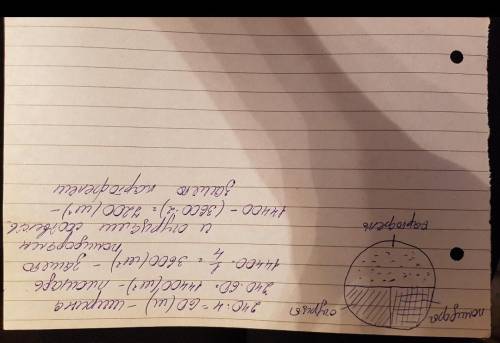 240 : 4 = 60 (м) - ширина
240 · 60 = 14400 (м²) - площадь
14400 · 1/4 = 3600 (м²) - занято
помидорами
и огурцами
14400 - (3600 · 2) = 7200 (м²) -
занято картофелем
помидоры
огурцы
картофель